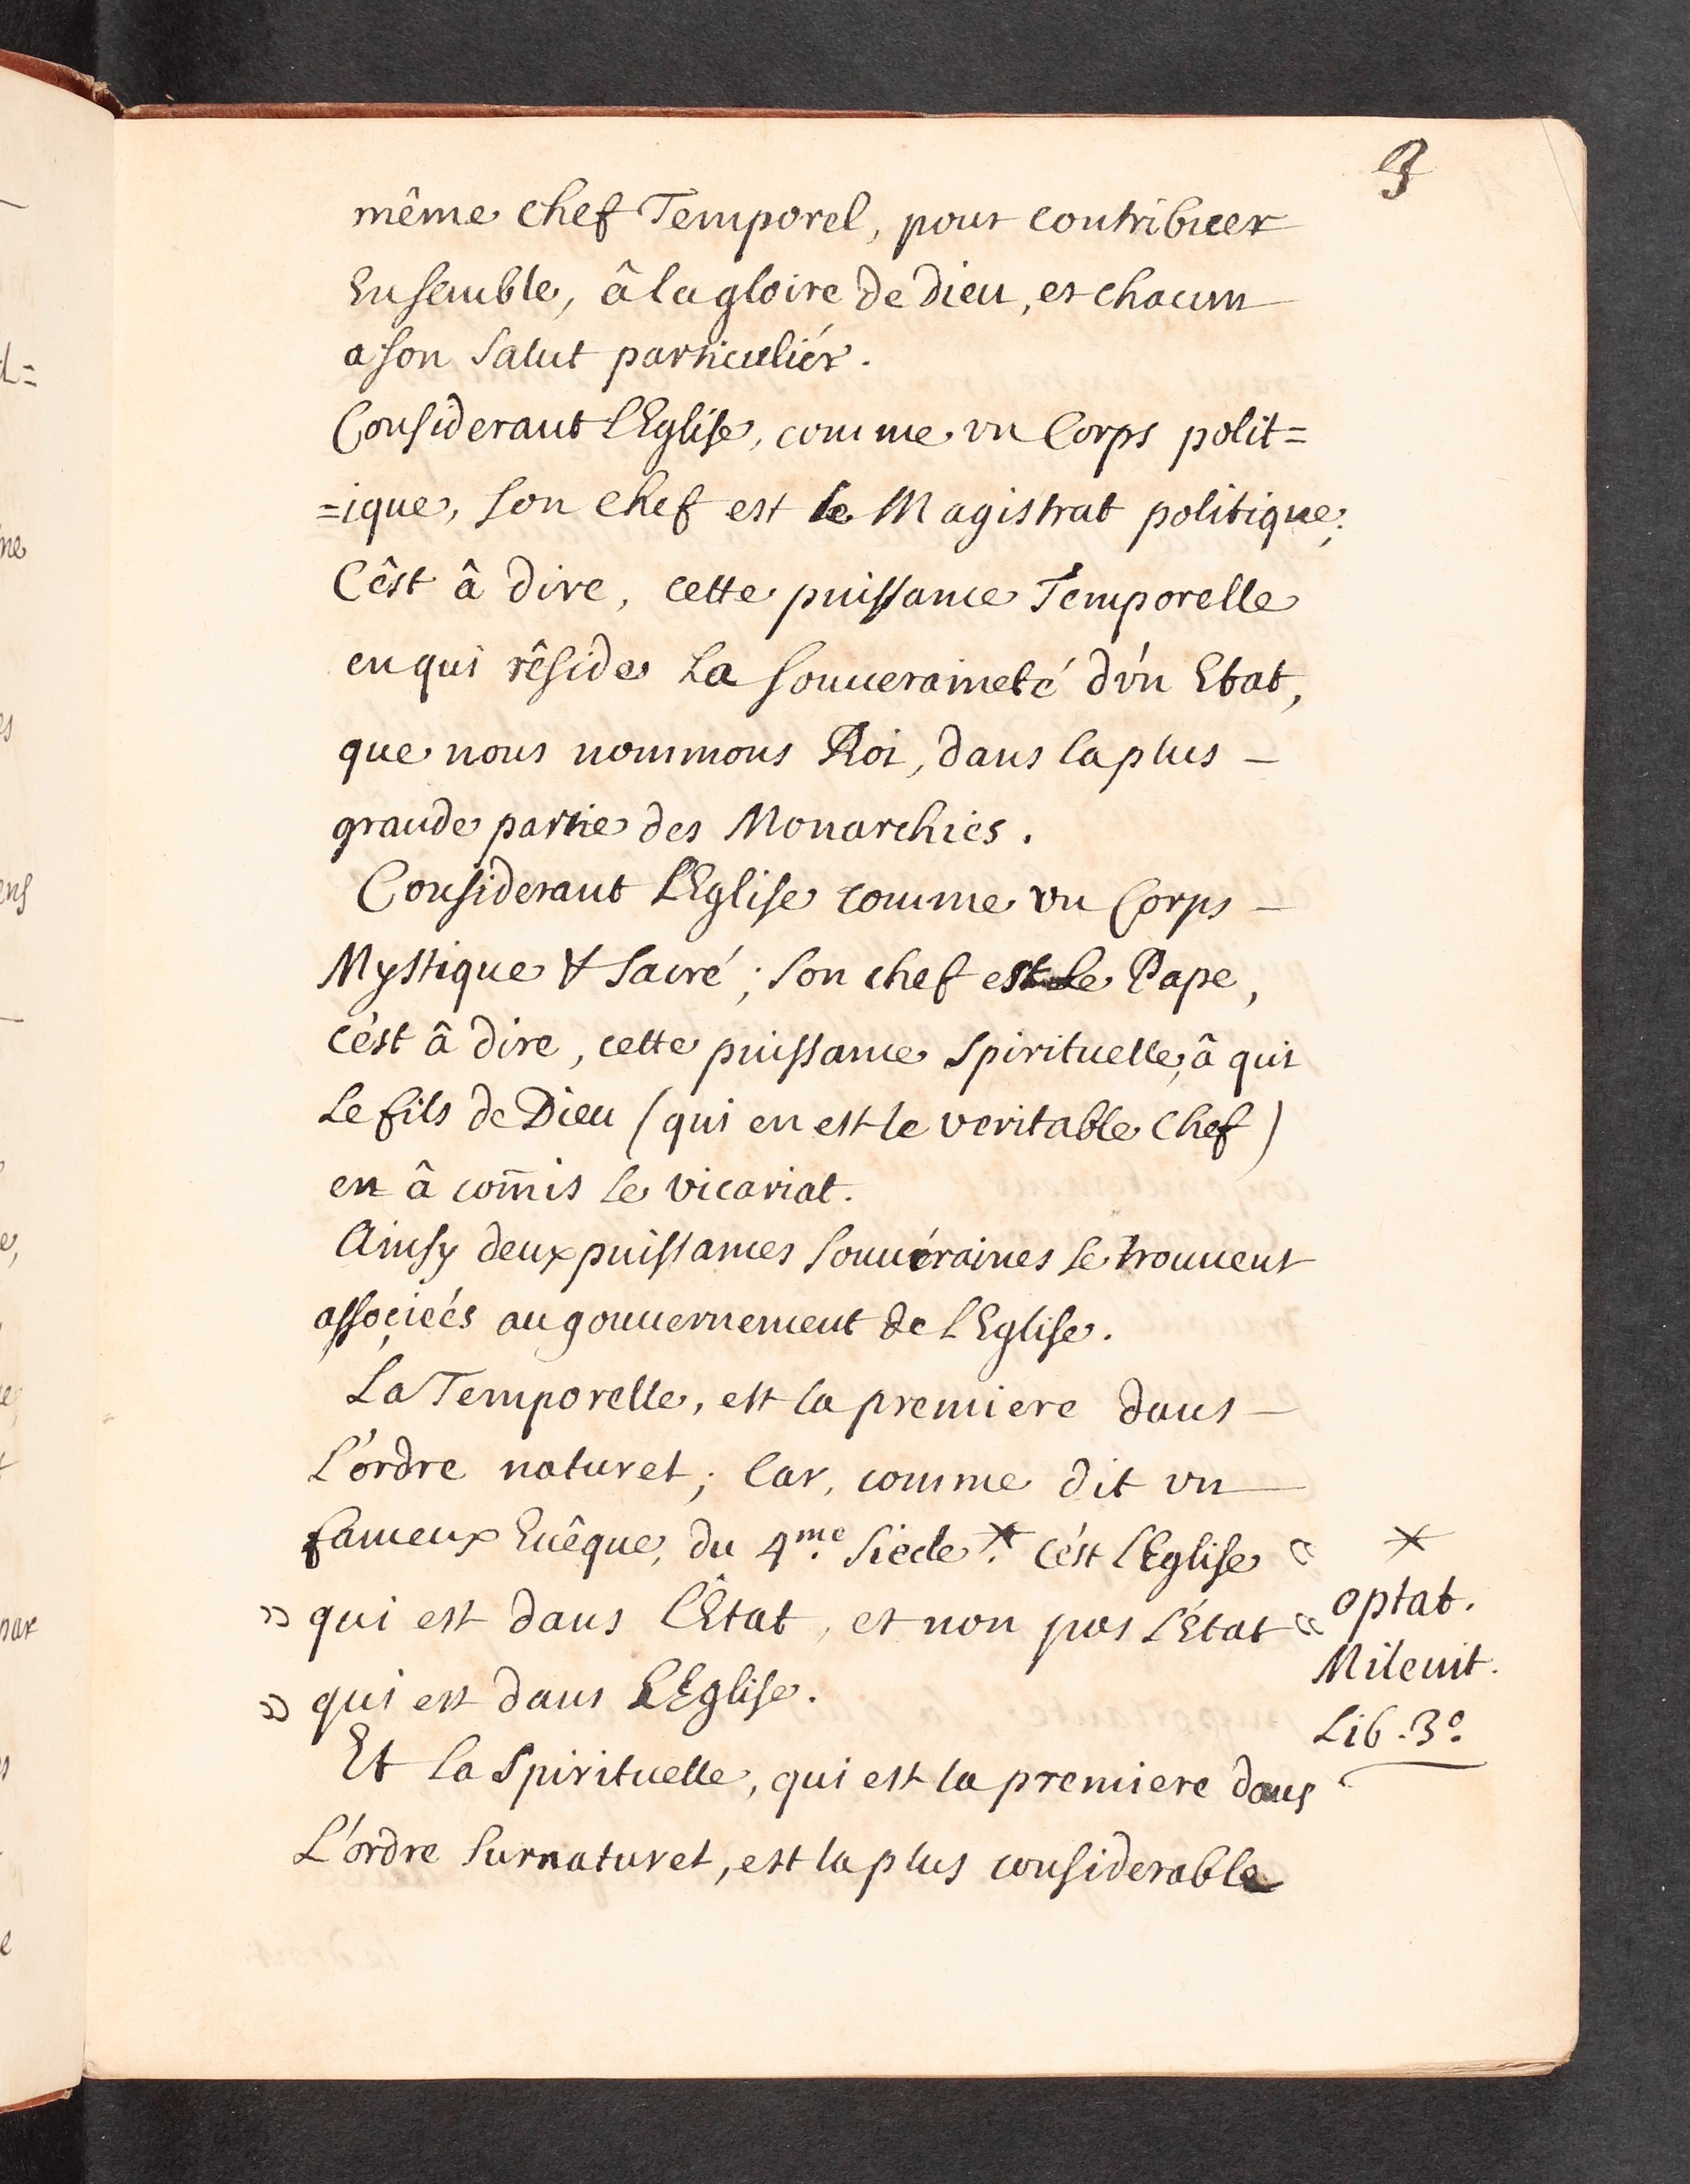 3
même chef Temporel, pour contribuer
Ensemble, â la gloire de Dieu, et chacun
a son Salut particuliér.
Considerant l'Eglise, comme vn Corps polit=
=ique, Son chef est le Magistrat politique;
C'êst â dire, cette puissance Temporelle
en qui rêside La Souueraineté d'vn Etat,
que nous nommons Roi, dans la plus –
grande partie des Monarchies.
Considerant L'Eglise comme vn Corps –
Mystique & Sacré; Son chef est Le Pape,
c'est â dire, cette puissance Spirituelle, â qui
Le fils de Dieu (qui en est le veritable Chef)
en â com̄is le vicariat.
Ainsy deux puissances Souuéraines se trouuent
associeés au gouuernement de L'Eglise.
La Temporelle, est la premiere dans –
L'ordre naturel; Car, comme dit vn
fameux Euêque, du 4.me Siecle * C'ést L'Eglise "
" qui est dans L'Êtat, et non pas L'État "
" qui est dans L'Eglise.
Et la Spirituelle, qui est la premiere dans
L'ordre Surnaturel, est la plus considerable
*
optat.
Mileuit.
Lib. 3.º